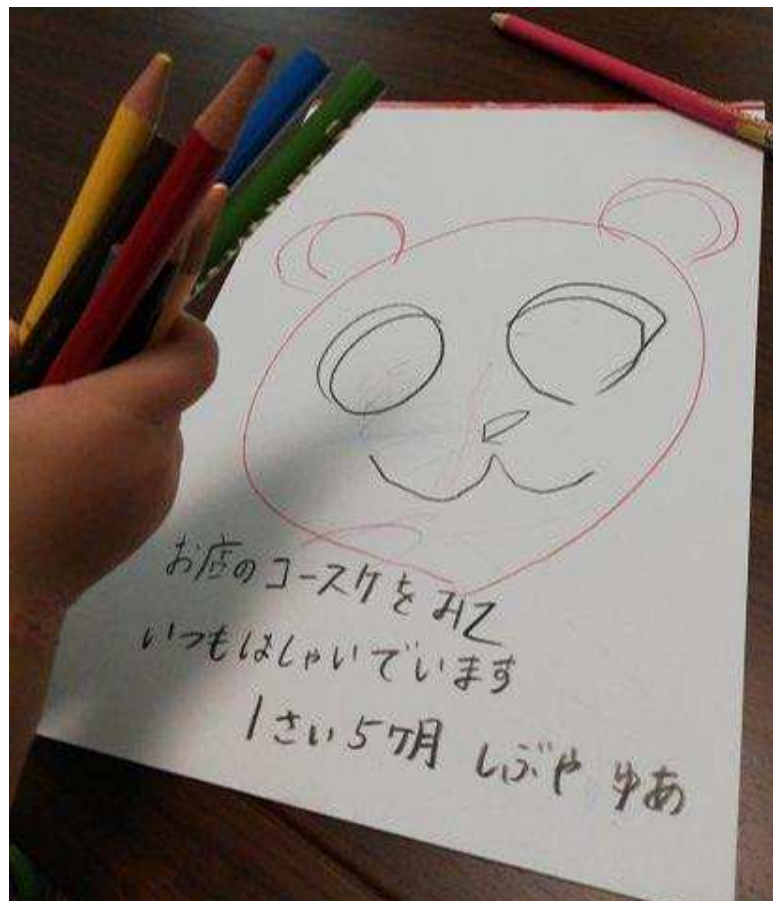 お店のコースケをみて
いつもはしゃいでいます
1さい5ヶ月 しぶや ゆあ